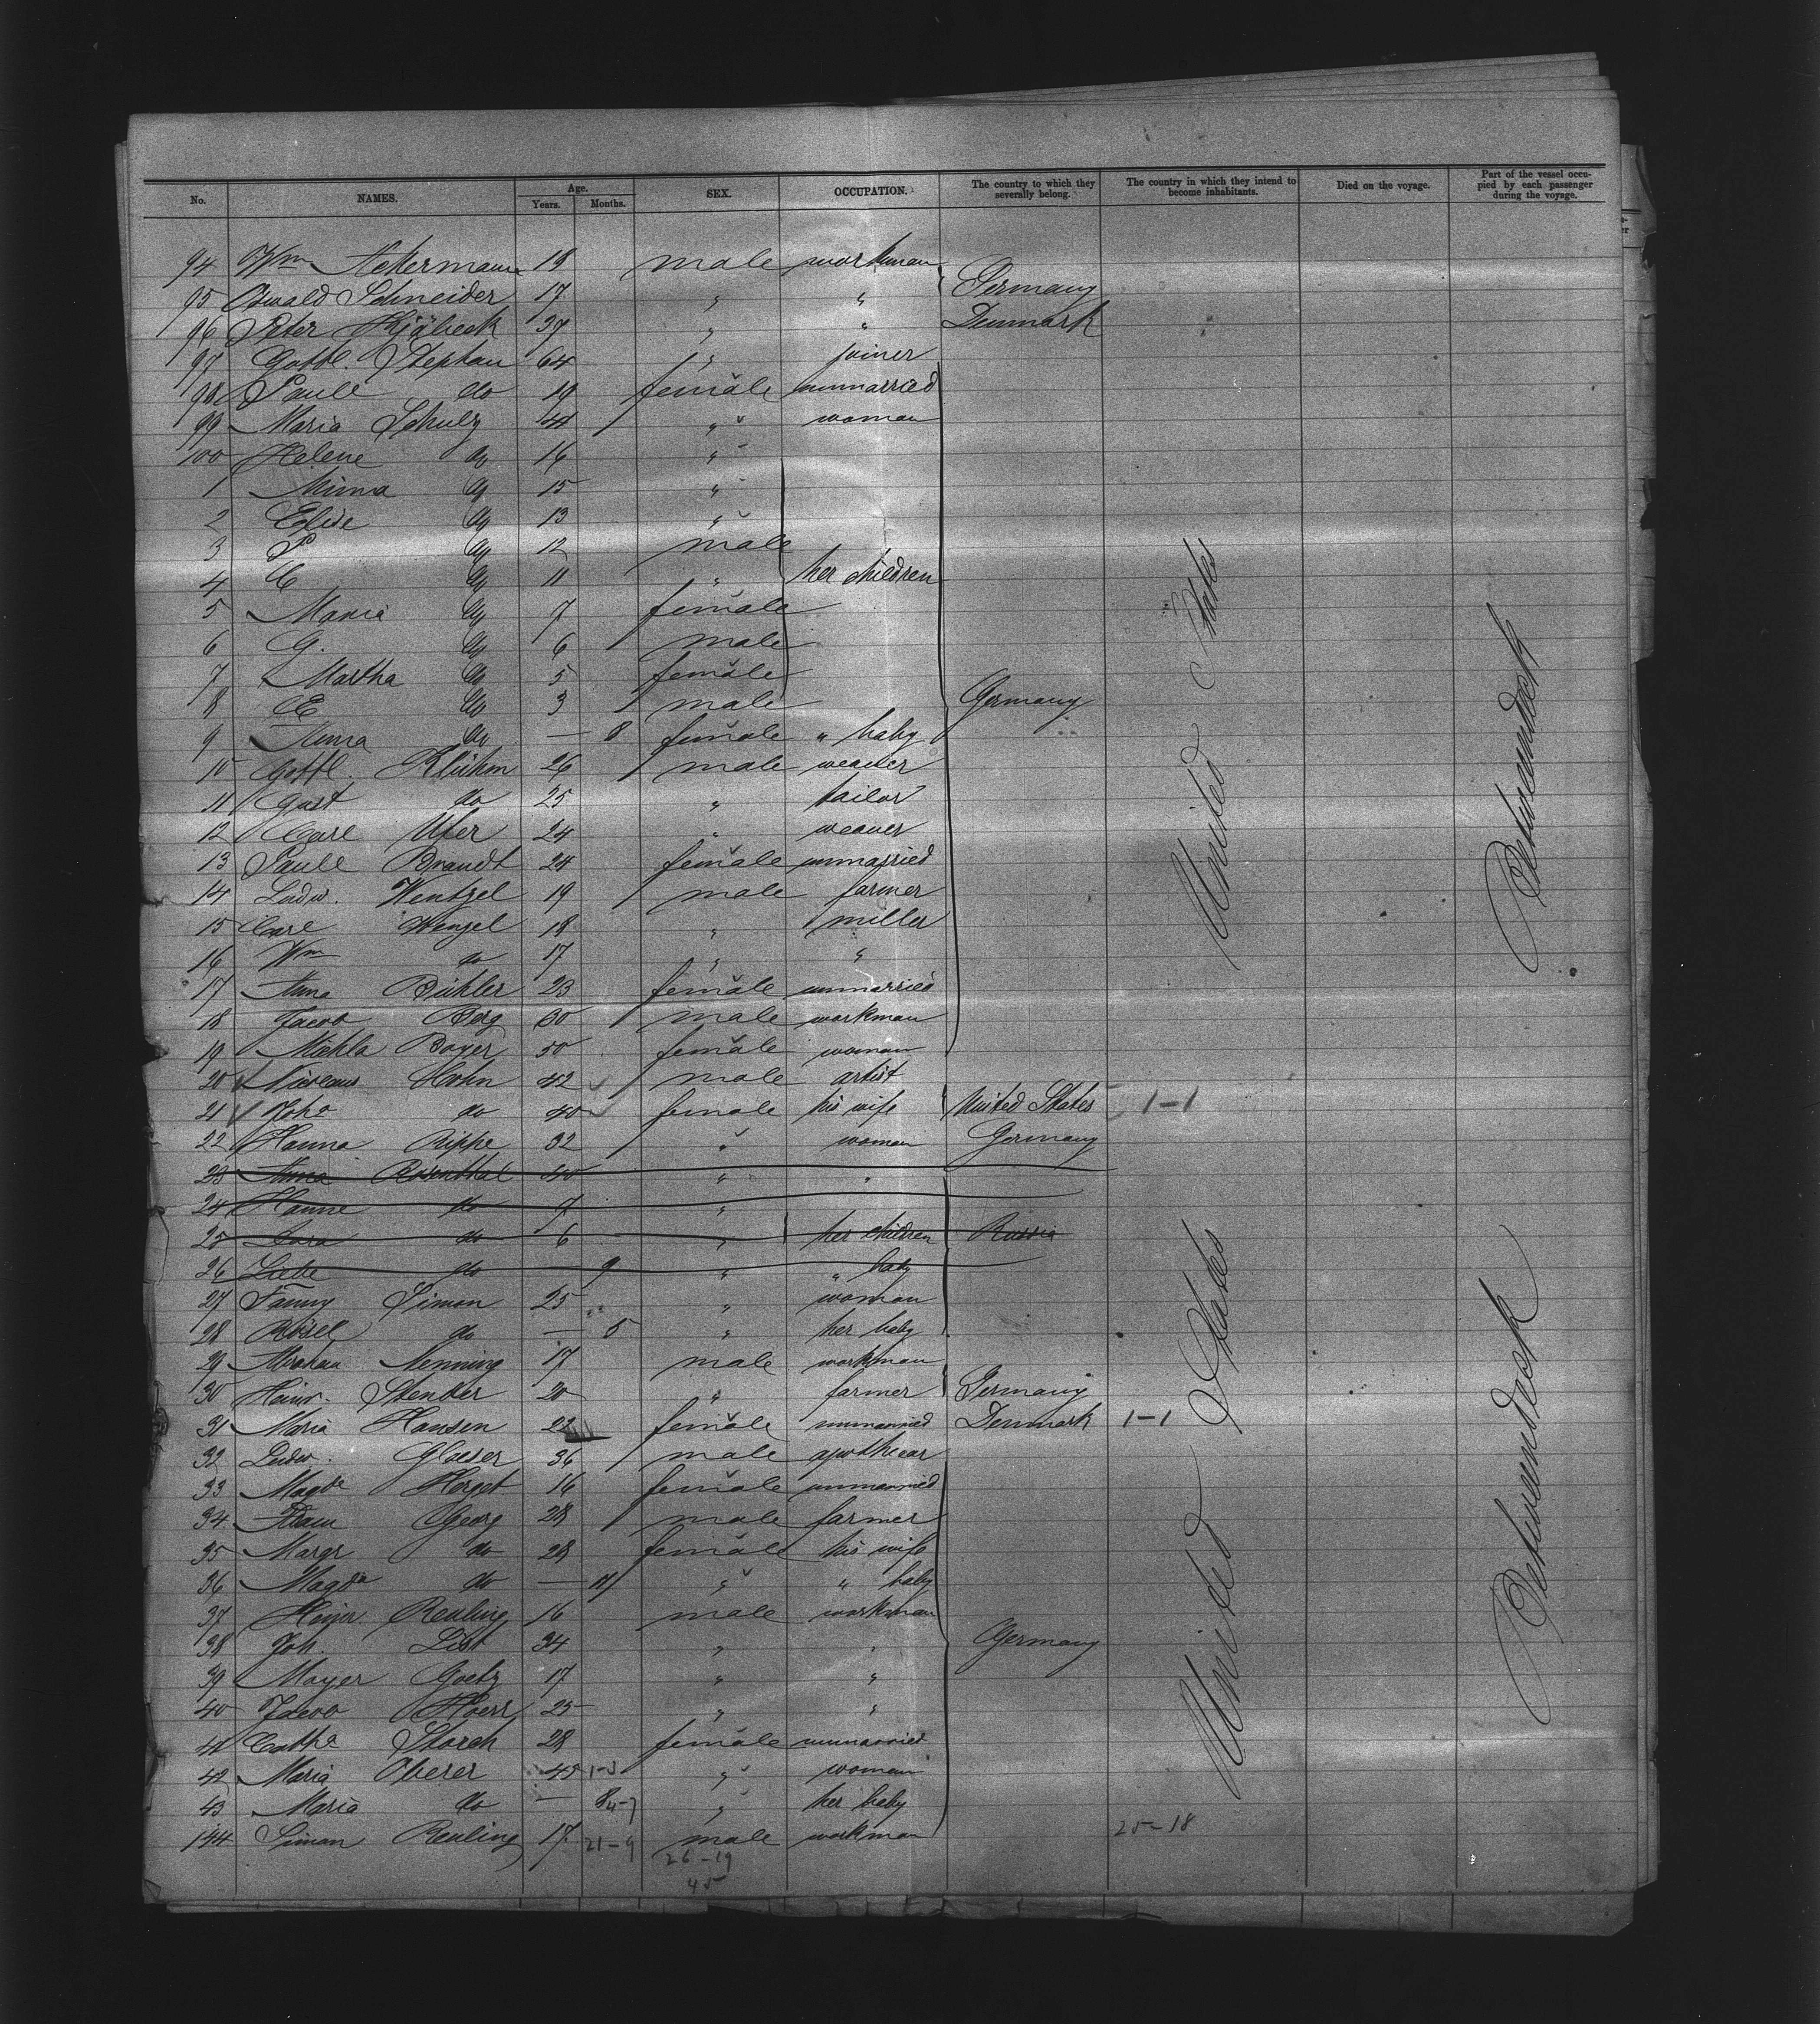 No. NAMES. Age. Years. Months. SEX. OCCUPATION. The country to which they severally belong. The country in which they intend to become inhabitants. Died on the voyage. Part of the vessel occupied by each passenger during the voyage.
94 Wm Ackermann 18 male workman
95 Oswald Schneider 17 " " Germany
96 Peter 37 " " Denmark
97 Gottl. Stephan 64 " joiner
98 Paule do 19 female unmarried
99 Maria Schulz 44 " woman
100 Helene do 16 "
1 Minna do 15 "
2 Elise do 13 "
3 P do 12 male
4 C do 11 " her children
5 Maria do 7 female
6 G. do 6 male
7 Martha do 5 female
8 E do 3 male Germany
9 Anna do — 8 female " baby
10 Gottl. Klühm 26 male weaver
11 Gust do 25 " tailor
12 Carl Uter 24 " weaver
13 Paule Brandt 24 female unmarried
14 Ludw. Wentzel 19 male farmer
15 Carl Wenzel 18 " miller
16 Wm do 17 " "
17 Anna Bühler 23 female unmarried
18 Jacob Berg 30 male workman
19 Michla Boyer 50 female woman
20 Nicolaus Hohn 42 male artist
21 Joha do 40 female his wife United States 1-1
22 Hanna Rippe 32 " woman Germany
23 Anna Rosenthal 40 " "
24 Hanne do 7 "
25 Sara do 6 " her children Russia
26 do 9 " " baby
27 Fanny Simon 25 " woman
28 Rösel do — 5 " her baby
29 Abraham Nenning 17 male workman
30 Heinr. Stenker 20 " farmer Germany
31 Maria Hansen 22 female unmarried Denmark 1-1
32 Ludw. Glaeser 36 male apothecar
33 Magda Herget 16 female unmarried
34 Georg 28 male farmer
35 Margr do 28 female his wife
36 Magda do — 11 " " baby
37 Heinr. Reuling 16 male workman
38 Joh. List 34 " " Germany
39 Mayer Goetz 17 " "
40 Jacob Hoerr 25 " "
41 Catha Storch 28 female unmarried
42 Maria Oberer 45 1-3 " woman
43 Maria do — 8 4-7 " her baby
144 Simon Reuling 17 21-9 male workman 25-18
26-19
45
United States
Betweendeck
United States
Betweendeck